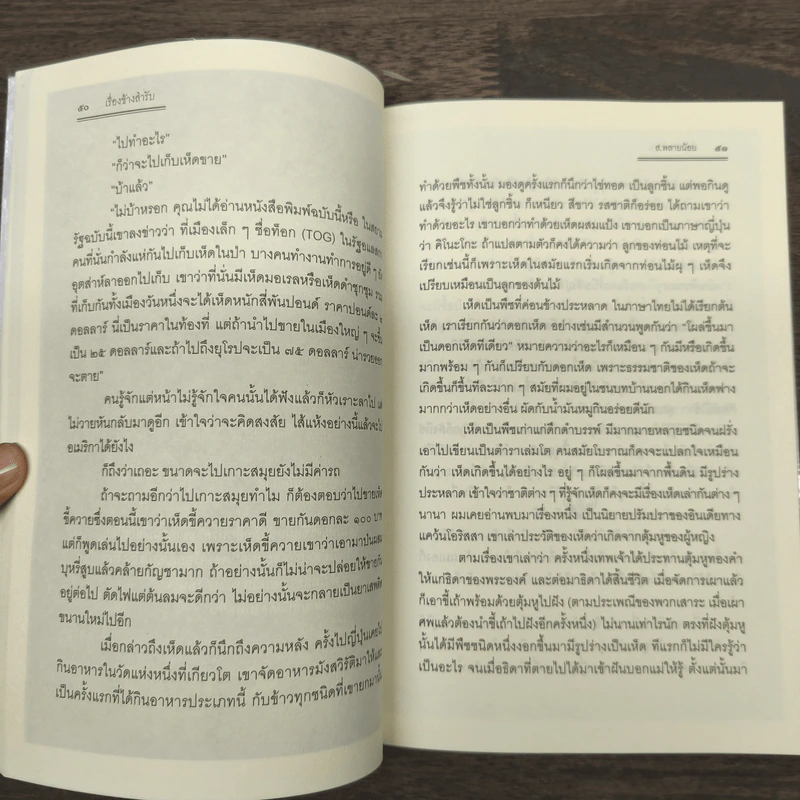 ๕๐ เรื่องข้างสำรับ
"ไปทำอะไร"
"ก็ว่าจะไปเก็บเห็ดขาย"
"บ้าแล้ว"
"ไม่บ้าหรอก คุณไม่ได้อ่านหนังสือพิมพ์ฉบับนี้หรือ
รัฐฉบับนี้เขาลงข่าวว่า ที่เมืองเล็ก ๆ ชื่อท็อก (TOG) ในรัฐ
คนที่นั่นกำลังแห่กันไปเก็บเห็ดในป่า บางคนทำงานทำการอยู่ดี ๆ
อุตส่าห์ลาออกไปเก็บ เขาว่าที่นั่นมีเห็ดมอเรลหรือเห็ดดำชุกชุม
ที่เก็บกันทั้งเมืองวันหนึ่งจะได้เห็ดหนักสี่พันปอนด์ ราคาปอนด์ละ
ดอลลาร์ นี่เป็นราคาในท้องที่ แต่ถ้านำไปขายในเมืองใหญ่ ๆ จะขึ้น
เป็น ๒๕ ดอลลาร์และถ้าไปถึงยุโรปจะเป็น ๗๕ ดอลลาร์ น่ารวยออก
จะตาย"
คนรู้จักแต่หน้าไม่รู้จักใจคนนั้นได้ฟังแล้วก็หัวเราะลาไป
ไม่วายหันกลับมาดูอีก เข้าใจว่าจะคิดสงสัย ไส้แห้งอย่างนี้แล้วจะไป
อเมริกาได้ยังไง
ก็ถึงว่าเถอะ ขนาดจะไปเกาะสมุยยังไม่มีค่ารถ
ถ้าจะถามอีกว่าไปเกาะสมุยทำไม ก็ต้องตอบว่าไปขายเห็ด
ขี้ควายซึ่งตอนนี้เขาว่าเห็ดขี้ควายราคาดี ขายกันดอกละ ๑๐๐ บาท
แต่ก็พูดเล่นไปอย่างนั้นเอง เพราะเห็ดขี้ควายเขาว่าเอามาปนผสม
บุหรี่สูบแล้วคล้ายกัญชามาก ถ้าอย่างนั้นก็ไม่น่าจะปล่อยให้ขายกัน
อยู่ต่อไป ตัดไฟแต่ต้นลมจะดีกว่า ไม่อย่างนั้นจะกลายเป็นยาเสพติด
ขนานใหม่ไปอีก
เมื่อกล่าวถึงเห็ดแล้วก็นึกถึงความหลัง ครั้งไปญี่ปุ่นเคยไป
กินอาหารในวัดแห่งหนึ่งที่เกียวโต เขาจัดอาหารมังสวิรัติมาให้
เป็นครั้งแรกที่ได้กินอาหารประเภทนี้ กับข้าวทุกชนิดที่เขายกมานั้น
ส.พลายน้อย ๕๑
ทำด้วยพืชทั้งนั้น มองดูครั้งแรกก็นึกว่าไข่ทอด เป็นลูกชิ้น แต่พอกินดู
แล้วจึงรู้ว่าไม่ใช่ลูกชิ้น ก็เหนียว สีขาว รสชาติก็อร่อย ได้ถามเขาว่า
ทำด้วยอะไร เขาบอกว่าทำด้วยเห็ดผสมแป้ง เขาบอกเป็นภาษาญี่ปุ่น
ว่า คิโนะโกะ ถ้าแปลตามตัวก็คงได้ความว่า ลูกของท่อนไม้ เหตุที่จะ
เรียกเช่นนี้ก็เพราะเห็ดในสมัยแรกเริ่มเกิดจากท่อนไม้ผุ ๆ เห็ดจึง
เปรียบเหมือนเป็นลูกของต้นไม้
เห็ดเป็นพืชที่ค่อนข้างประหลาด ในภาษาไทยไม่ได้เรียกต้น
เห็ด เราเรียกกันว่าดอกเห็ด อย่างเช่นมีสำนวนพูดกันว่า "โผล่ขึ้นมา
เป็นดอกเห็ดทีเดียว" หมายความว่าอะไรก็เหมือน ๆ กันมีหรือเกิดขึ้น
มากพร้อม ๆ กันก็เปรียบกับดอกเห็ด เพราะธรรมชาติของเห็ดถ้าจะ
เกิดขึ้นก็ขึ้นทีละมาก ๆ สมัยที่ผมอยู่ในชนบทบ้านนอกได้กินเห็ดฟาง
มากกว่าเห็ดอย่างอื่น ผัดกับน้ำมันหมูกินอร่อยดีนัก
เห็ดเป็นพืชเก่าแก่ดึกดำบรรพ์ มีมากมายหลายชนิดจนฝรั่ง
เอาไปเขียนเป็นตำราเล่มโต คนสมัยโบราณก็คงจะแปลกใจเหมือน
กันว่า เห็ดเกิดขึ้นได้อย่างไร อยู่ ๆ ก็โผล่ขึ้นมาจากพื้นดิน มีรูปร่าง
ประหลาด เข้าใจว่าชาติต่าง ๆ ที่รู้จักเห็ดก็คงจะมีเรื่องเห็ดเล่ากันต่าง ๆ
นานา ผมเคยอ่านพบมาเรื่องหนึ่ง เป็นนิยายปรัมปราของอินเดียทาง
แคว้นโอริสสา เขาเล่าประวัติของเห็ดว่าเกิดจากตุ้มหูของผู้หญิง
ตามเรื่องเขาเล่าว่า ครั้งหนึ่งเทพเจ้าได้ประทานตุ้มหูทองคำ
ให้แก่ธิดาของพระองค์ และต่อมาธิดาได้สิ้นชีวิต เมื่อจัดการเผาแล้ว
ก็เอาขี้เถ้าพร้อมด้วยตุ้มหูไปฝัง (ตามประเพณีของพวกเสาระ เมื่อเผา
ศพแล้วต้องนำขี้เถ้าไปฝังอีกครั้งหนึ่ง) ไม่นานเท่าไรนัก ตรงที่ฝังตุ้มหู
นั้นได้มีพืชชนิดหนึ่งงอกขึ้นมามีรูปร่างเป็นเห็ด ทีแรกก็ไม่มีใครรู้ว่า
เป็นอะไร จนเมื่อธิดาที่ตายไปได้มาเข้าฝันบอกแม่ให้รู้ ตั้งแต่นั้นมา